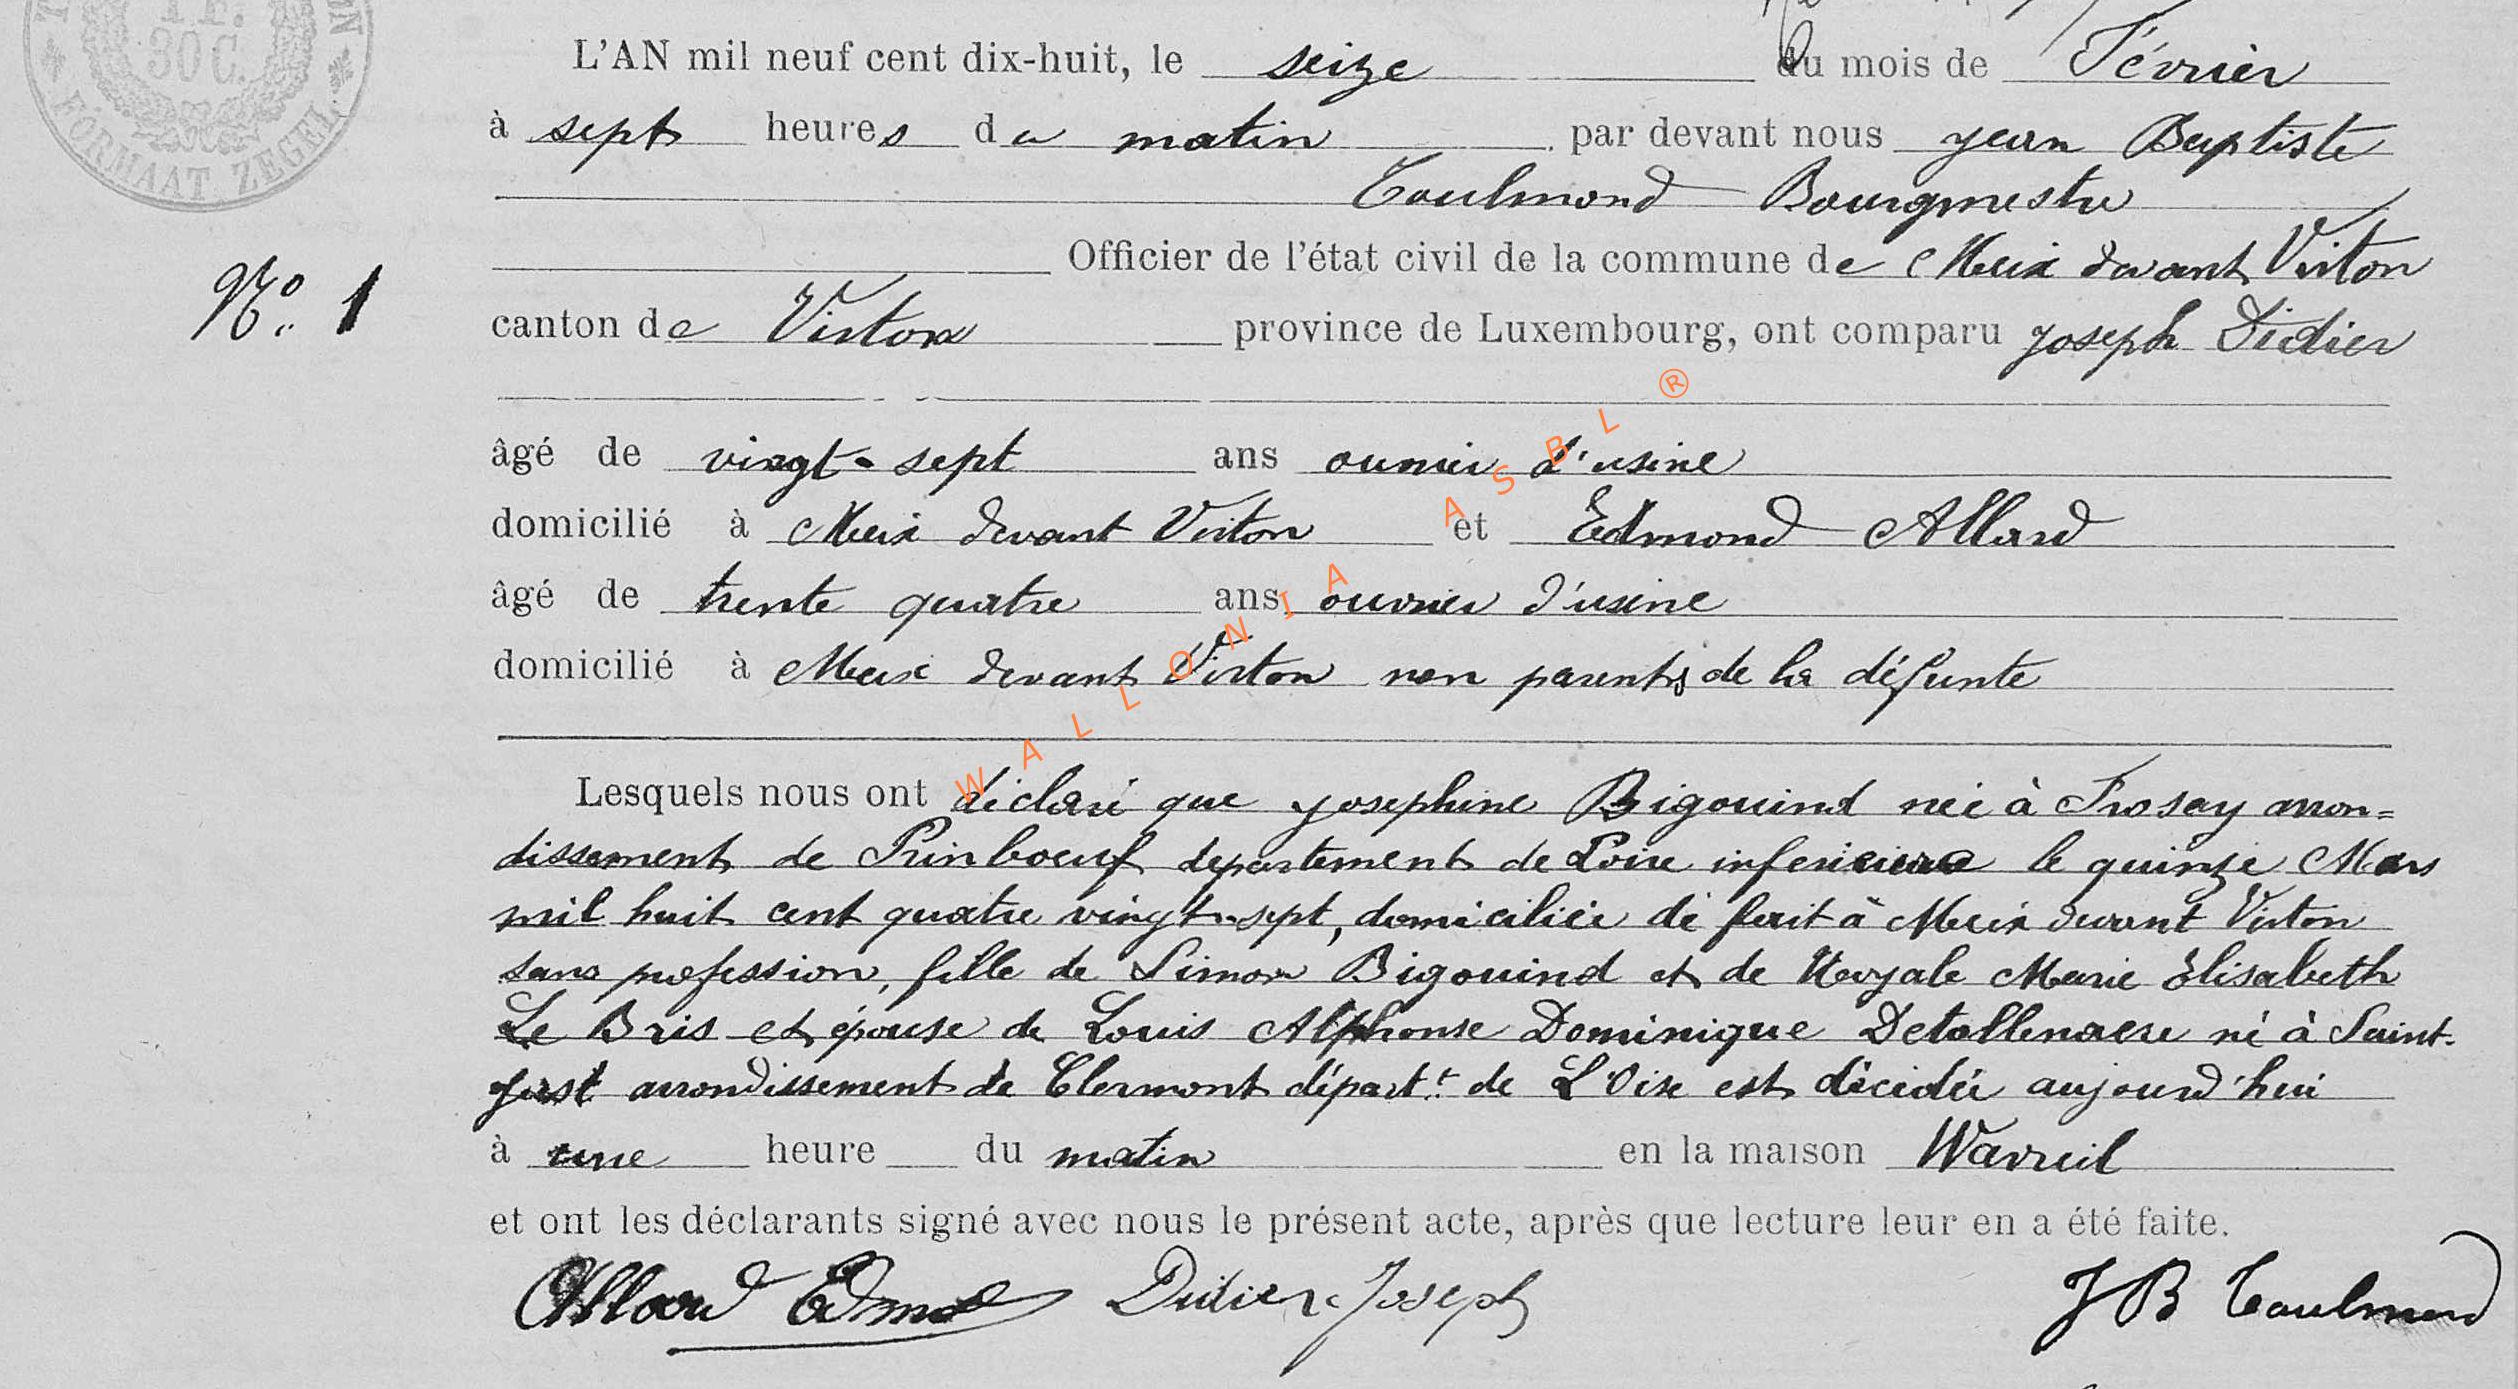 1 F.
30 C.
FORMAAT ZEGEL
L'AN mil neuf cent dix-huit, le seize du mois de Février
à sept heures du matin par devant nous Jean Baptiste
Toulmond Bourgmestre
Officier de l'état civil de la commune de Meix devant Virton
N° 1
canton de Virton province de Luxembourg, ont comparu Joseph Didier
âgé de vingt-sept ans ouvrier d'usine
domicilié à Meix devant Virton et Edmond Allard
âgé de trente quatre ans ouvrier d'usine
domicilié à Meix devant Virton non parents de la défunte
Lesquels nous ont déclaré que Josephine Bigouind née à Frosay arron=
dissement de Painboeuf departement de Loire inferieure le quinze Mars
mil huit cent quatre vingt-sept, domiciliée de fait à Meix devant Virton
sans profession, fille de Simon Bigouind et de Marie Elisabeth
Le Bris et épouse de Louis Alphonse Dominique Detollenaere né à Saint-
Just arrondissement de Clermont départ.t de L'Oise est décidée aujourd'hui
à une heure du matin en la maison Wavreil
et ont les déclarants signé avec nous le présent acte, après que lecture leur en a été faite.
Allard Edmond Didier Joseph J B Toulmond
WALLONIA ASBL ®